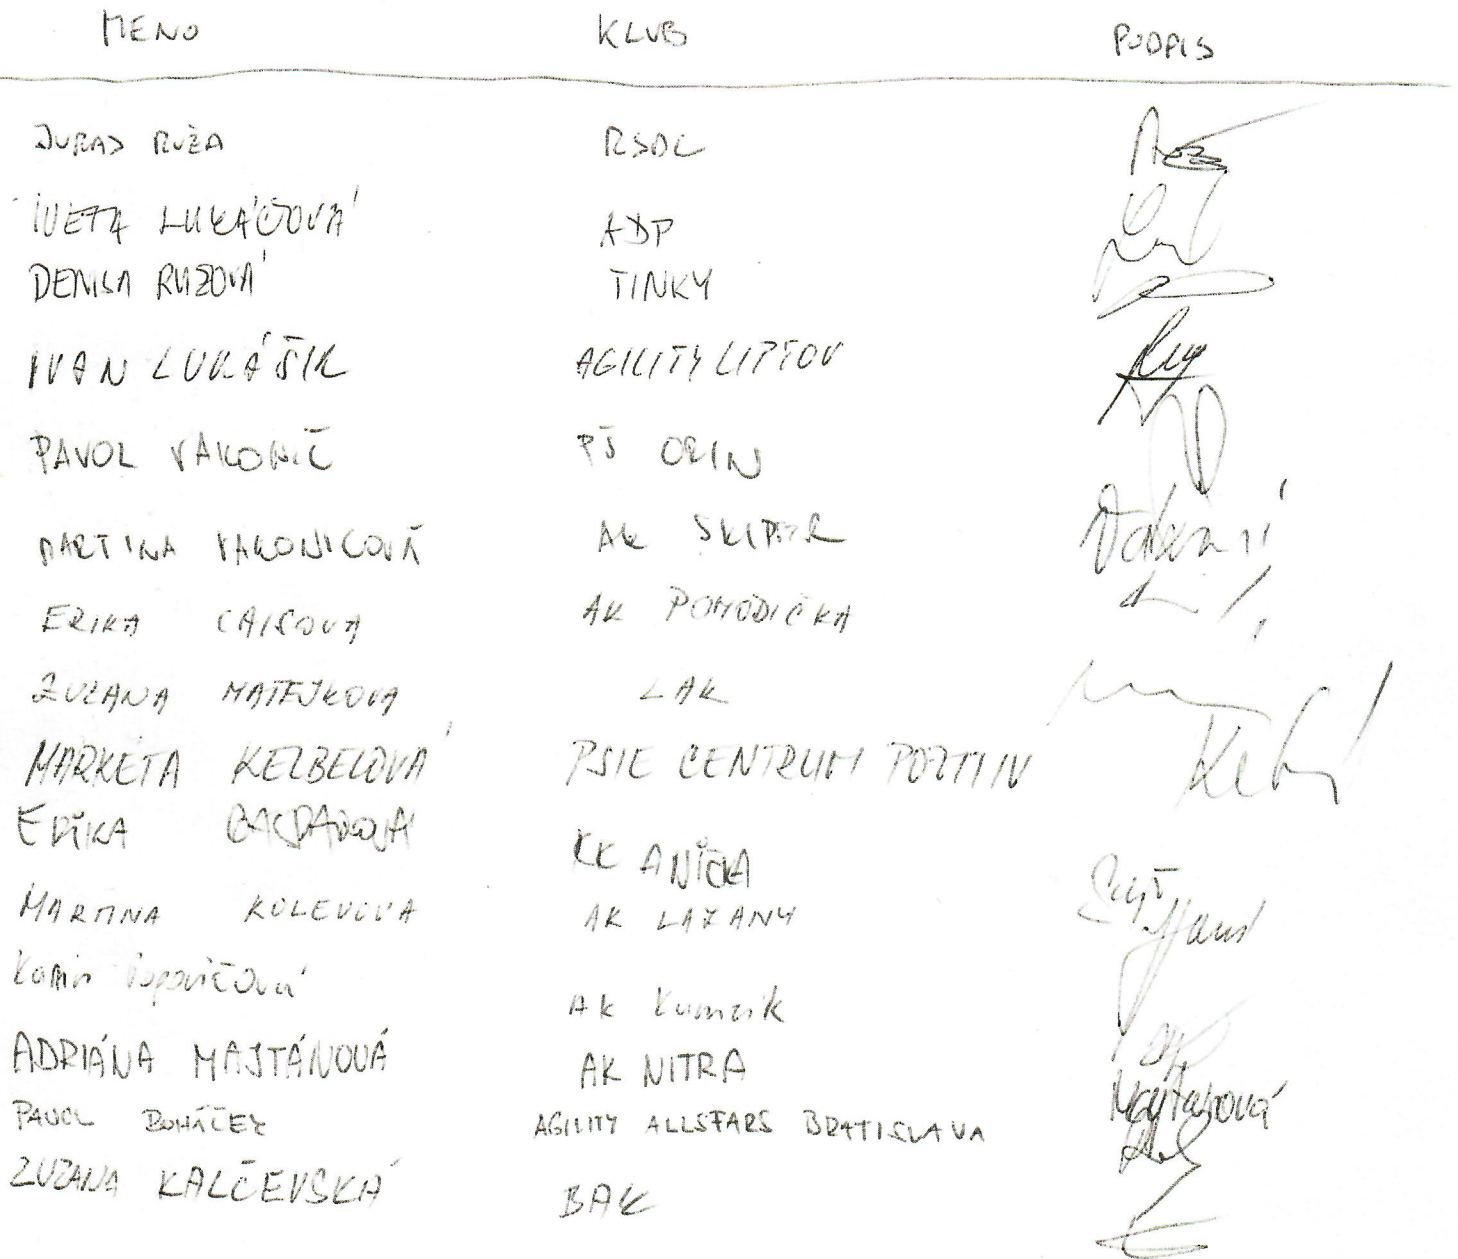 MENO KLUB PODPIS
JURAJ RUŽA RSDL
IVETA LUKÁČOVÁ ADP
DENISA RUŽOVÁ TINKY
IVAN LUKÁŠIK AGILITY LIPTOV
PAVOL VAKONIČ PŠ ORIN
MARTINA VAKONICOVÁ AK SKIPER
ERIKA CAISOVA AK POHODIČKA
ZUZANA MATEJKOVA LAK
MARKÉTA KELBELOVÁ PSIE CENTRUM POZITIV
ERIKA KK ANIČKA
MARTINA KOLEVOVA AK LAZANY
AK
ADRIÁNA MAJTÁNOVÁ AK NITRA Majtanová
PAVOL BOHÁČEK AGILITY ALLSTARS BRATISLAVA
ZUZANA KALČEVSKÁ BAK